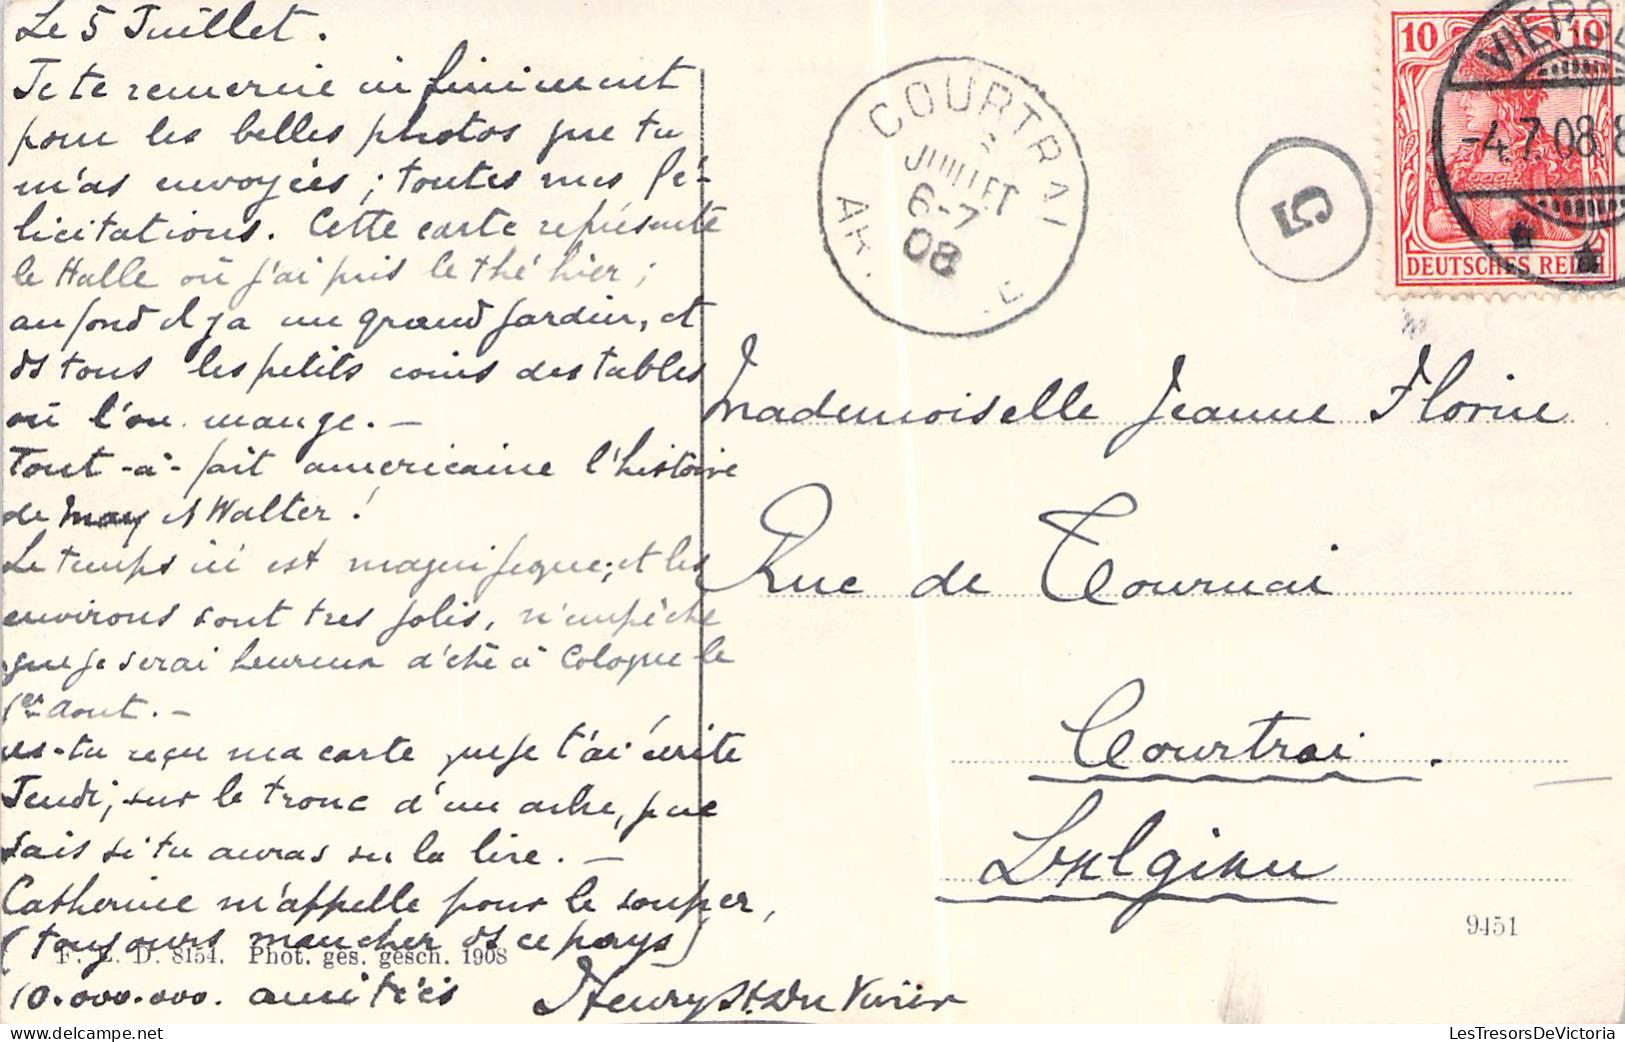 Le 5 Juillet.
Je te remercie infiniment
pour les belles photos que tu
m'as envoyées; toutes mes fé-
licitations. Cette carte représente
le Halle où j'ai pris le thé hier;
au fond il y a un grand jardin, et
ds tous les petits coins des tables
où l'on mange. —
Tout-à-fait americaine l'histoire
de May et Walter!
Le temps ici est magnifique; et les
environs sont tres jolis, n'empêche
que je serai heureux d'être à Cologne le
1er Aout. —
as-tu reçu ma carte que je t'ai écrite
Jeudi, sur le tronc d'un arbre,
sais si tu auras su la lire. —
Catherine m'appelle pour le souper,
(toujours mancher ds ce pays)
F. L. D. 8154. Phot. ges. gesch. 1908
10.000.000. amitiés Henry
COURTRAI
JUILLET
6-7
08
5
10 10
DEUTSCHES REICH
VIERSE
-4.7.08.8
Mademoiselle Jeanne Florin
Rue de Tournai
Courtrai.
Belgien
9451
LesTresorsDeVictoria